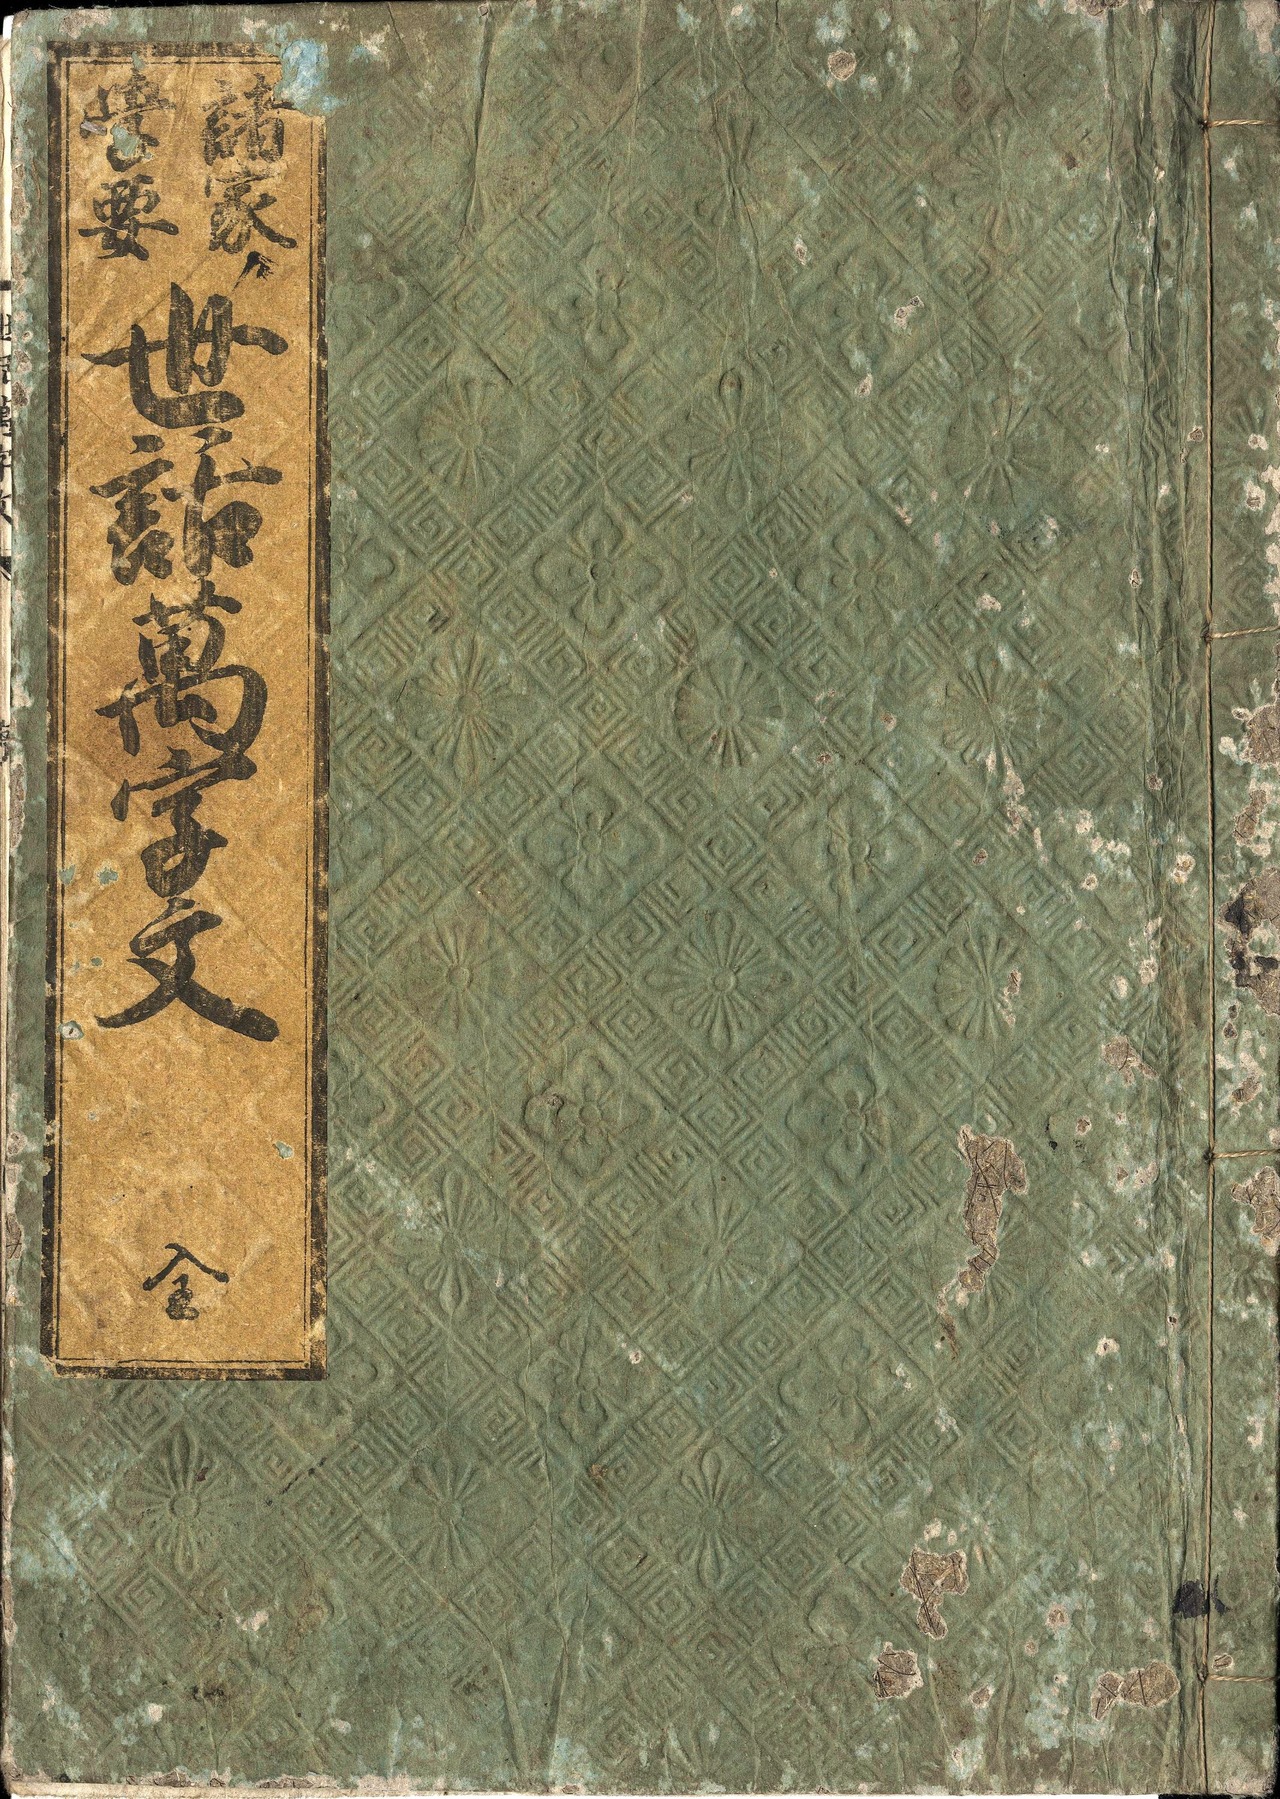 諸家
要
世話萬字文
全